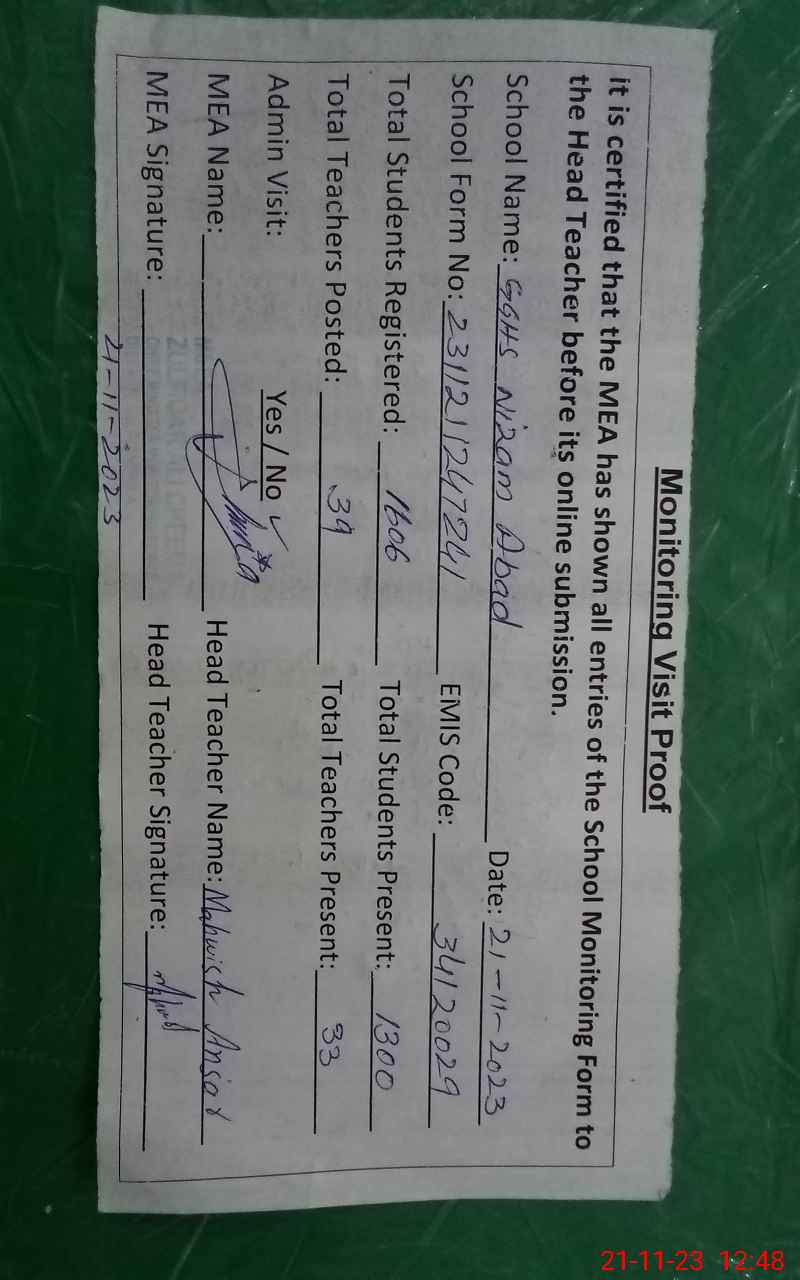 Monitoring Visit Proof
it is certified that the MEA has shown all entries of the School Monitoring Form to
the Head Teacher before its online submission.
School Name: GGHS Nizam Abad Date: 21-11-2023
School Form No: 2311211247241 EMIS Code: 34120029
Total Students Registered: 1606 Total Students Present: 1300
Total Teachers Posted: 39 Total Teachers Present: 33
Admin Visit: Yes / No ✓
MEA Name: Head Teacher Name: Mahwish Ansar
MEA Signature: Head Teacher Signature:
21-11-2023
21-11-23 12:48